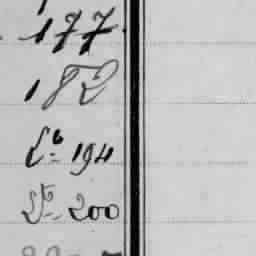 177.
182
Lb 194
Lb 200